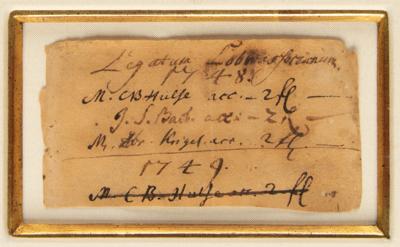 Legatum Lobwasserianum
1748.
M. C B Hulse acc. — 2 fl —
J. S. Bach. acc. — 2 fl —
M. Kriegel. acc. 2 fl. —
1749.
M. C B. Hulse acc. 2 fl